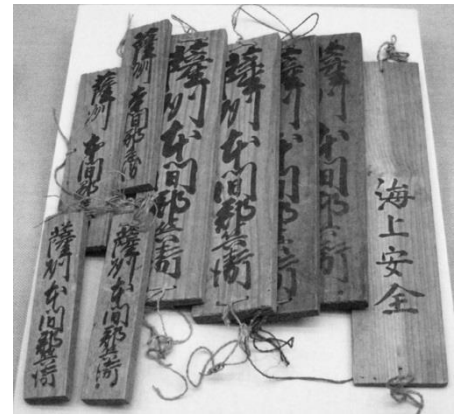 海上安全
薩州本間郡兵衛
薩州本間郡兵衛
薩州本間郡兵衛
薩州本間郡兵衛
薩州本間郡兵衛
薩州本間郡兵衛
薩州本間郡兵衛
薩州本間郡兵衛